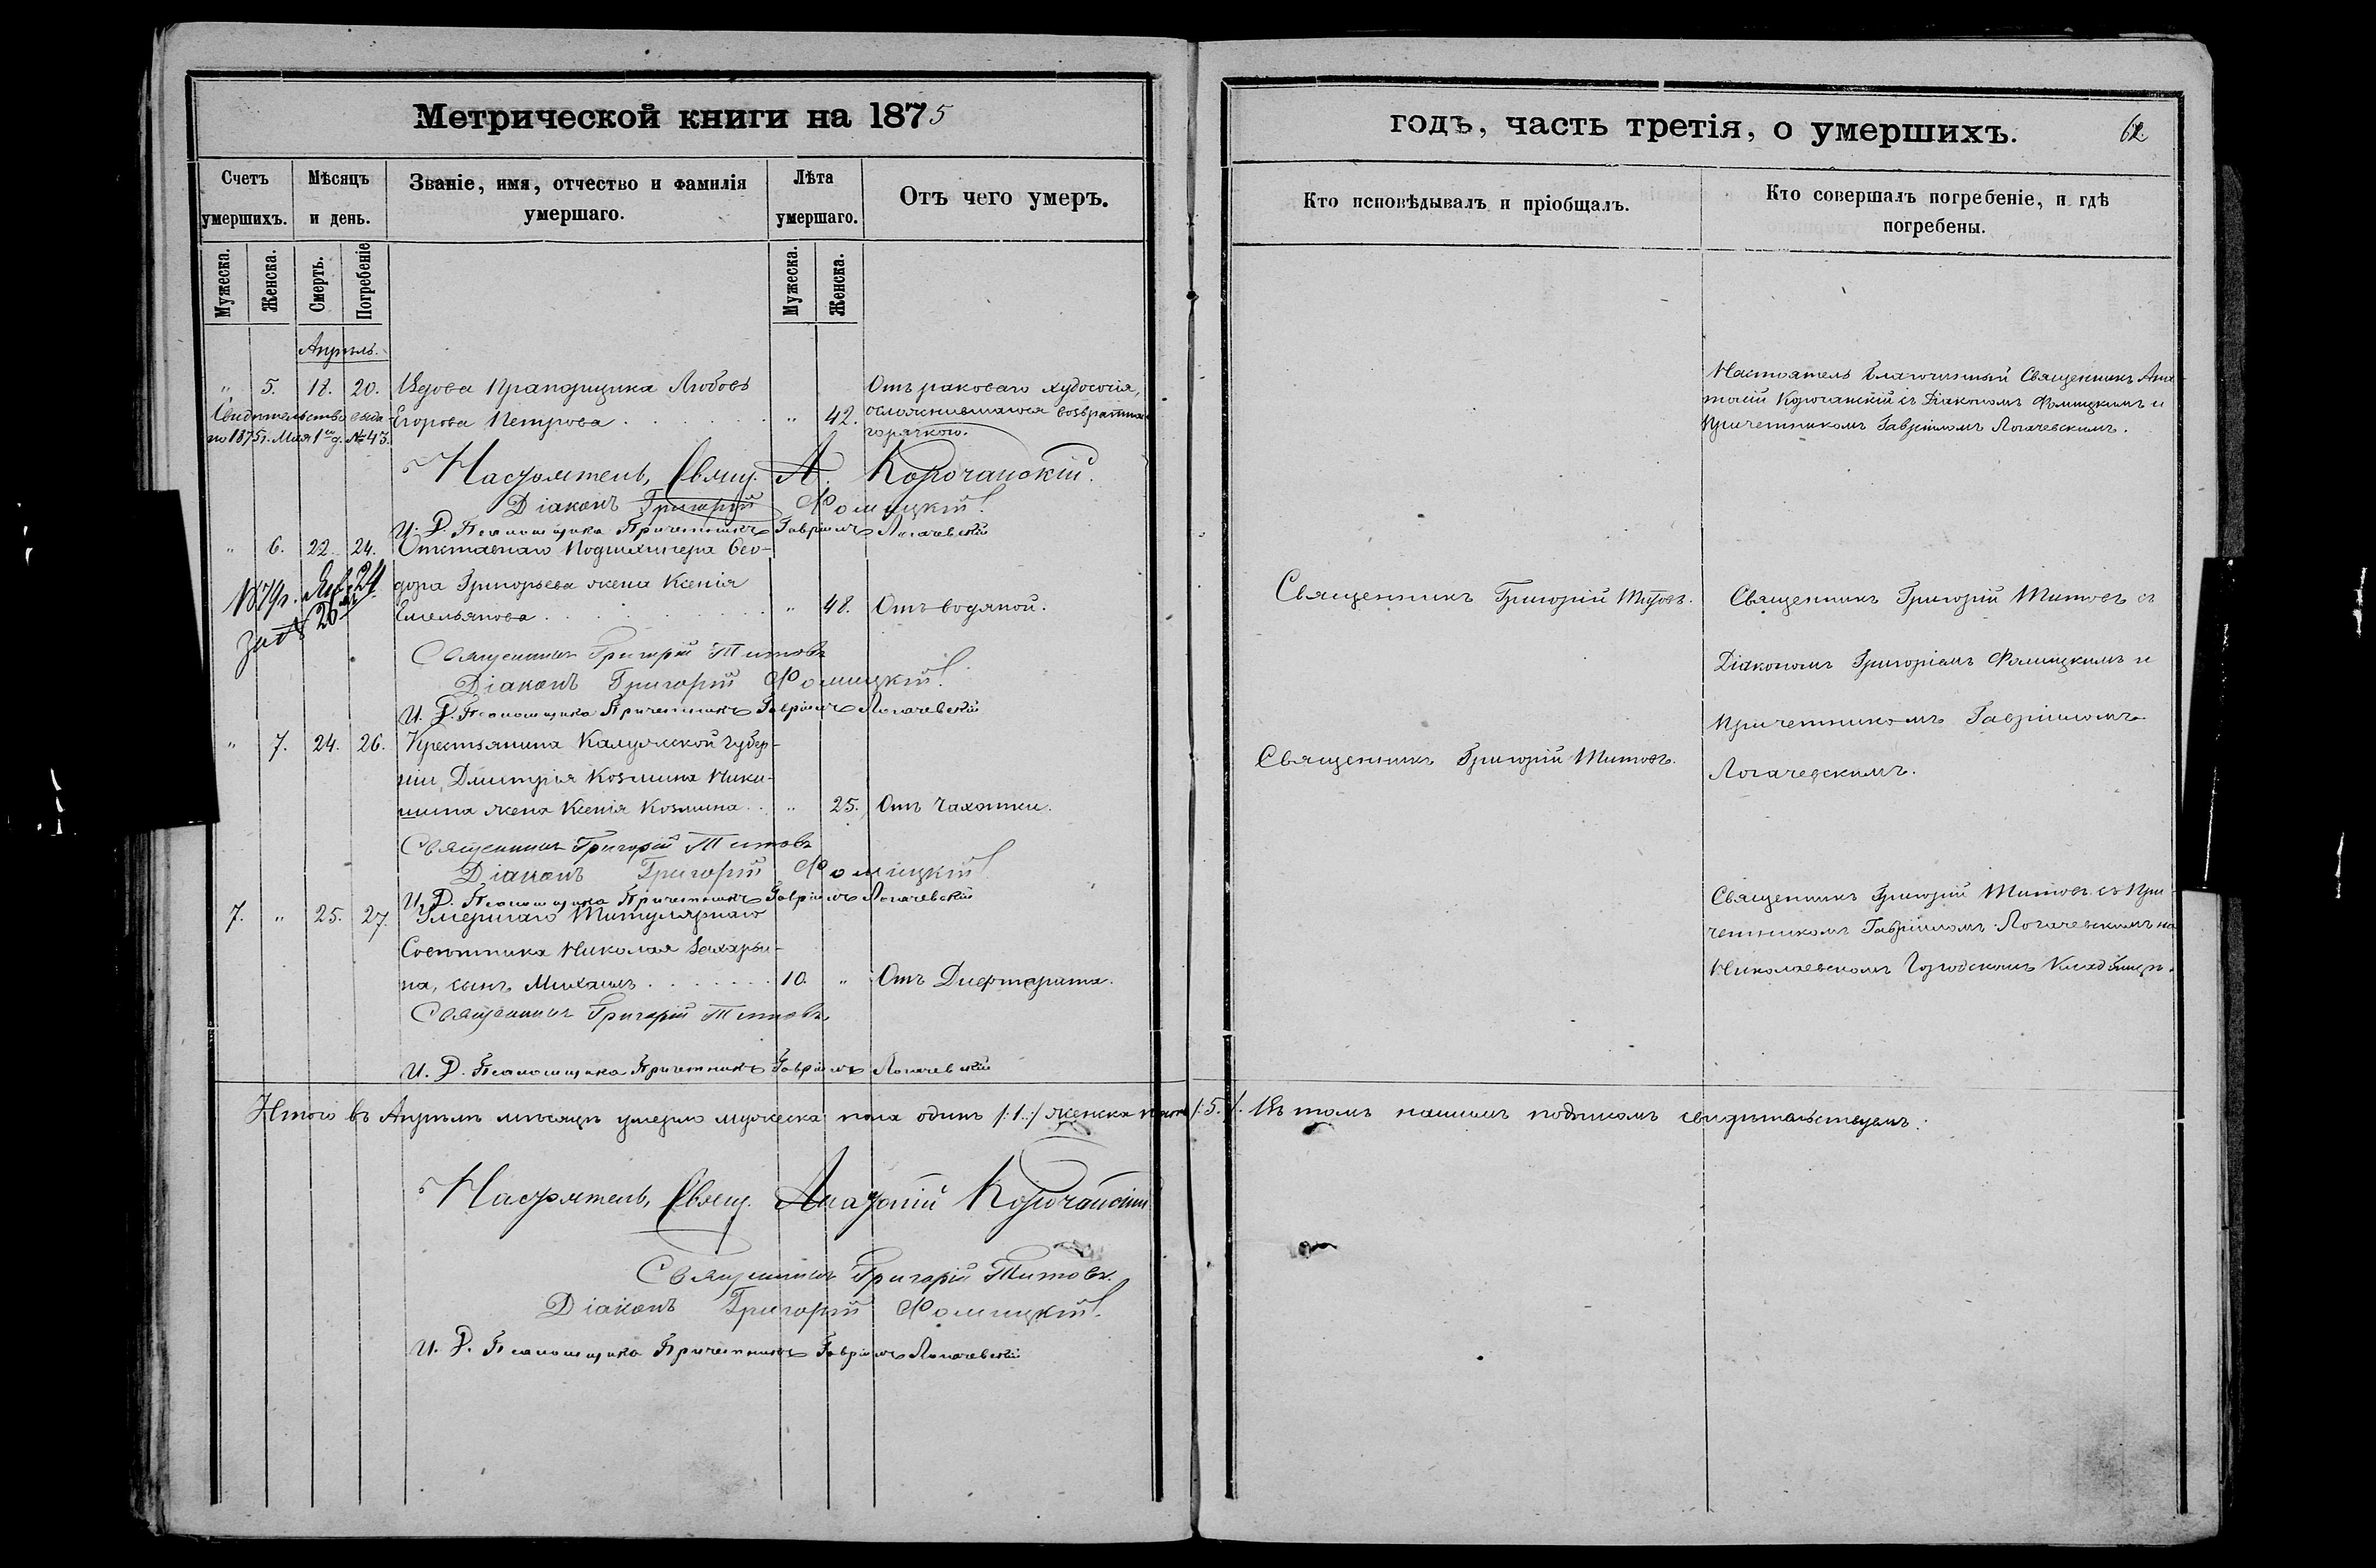 Метрической книги на 1875
годъ, часть третія, о умершихъ.
62
Счетъ умершихъ.
Мѣсяцъ и день.
Званіе, имя, отчество и фамилія умершаго.
Лѣта умершаго.
Отъ чего умеръ.
Кто исповѣдывалъ и пріобщалъ.
Кто совершалъ погребеніе, и гдѣ погребены.
Мужеска.
Женска.
Смерть.
Погребеніе
Мужеска.
Женска.
Апрѣль.
" 5. 18. 20. Вдова Прапорщика Любовь
Егорова Петрова " 42.
Отъ раковаго худосочія,
осложнившагося возвратною
горячкою.
Свидѣтельство выда-
но 1875г. Мая 1го д. № 43.
Настоятель Благочинный Священникъ Ана-
толій Корочанскій съ Діакономъ Фомицкимъ и
Причетникомъ Гавріиломъ Логачевскимъ.
Настоятель, Свящ. А. Корочанскій.
Діаконъ Григорій Фомицкій.
И. Д. Псаломщика Причетникъ Гавріилъ Логачевскій
" 6. 22. 24. Отставнаго Подшхипера Ѳео-
дора Григорьева жена Ксенія
Емельянова " 48. Отъ водяной.
1879г.
Священникъ Григорій Титовъ.
Священникъ Григорій Титовъ съ
Діакономъ Григоріемъ Фомицкимъ и
Причетникомъ Гавріиломъ
Логачевскимъ.
Священникъ Григорій Титовъ
Діаконъ Григорій Фомицкій.
И. Д. Псаломщика Причетникъ Гавріилъ Логачевскій
" 7. 24. 26. Крестьянина Калужской губер-
ніи, Дмитрія Козмина Ники-
шина жена Ксенія Козмина " 25. Отъ чахотки.
Священникъ Григорій Титовъ.
Священникъ Григорій Титовъ
Діаконъ Григорій Фомицкій.
И. Д. Псаломщика Причетникъ Гавріилъ Логачевскій
7. " 25. 27. Умершаго Титулярнаго
Совѣтника Николая Захарьи-
на, сынъ Михаилъ 10. " Отъ Дифтерита.
Священникъ Григорій Титовъ съ При-
четникомъ Гавріиломъ Логачевскимъ на
Николаевскомъ Городскомъ Кладбищѣ.
Священникъ Григорій Титовъ
И. Д. Псаломщика Причетникъ Гавріилъ Логачевскій
Итого въ Апрѣлѣ мѣсяцѣ умерло мужеска пола одинъ /:1:/ женска пять /:5:/. Въ томъ нашимъ подписомъ свидѣтельствуемъ.
Настоятель, Свящ. Анатолій Корочанскій
Священникъ Григорій Титовъ.
Діаконъ Григорій Фомицкій.
И. Д. Псаломщика Причетникъ Гавріилъ Логачевскій